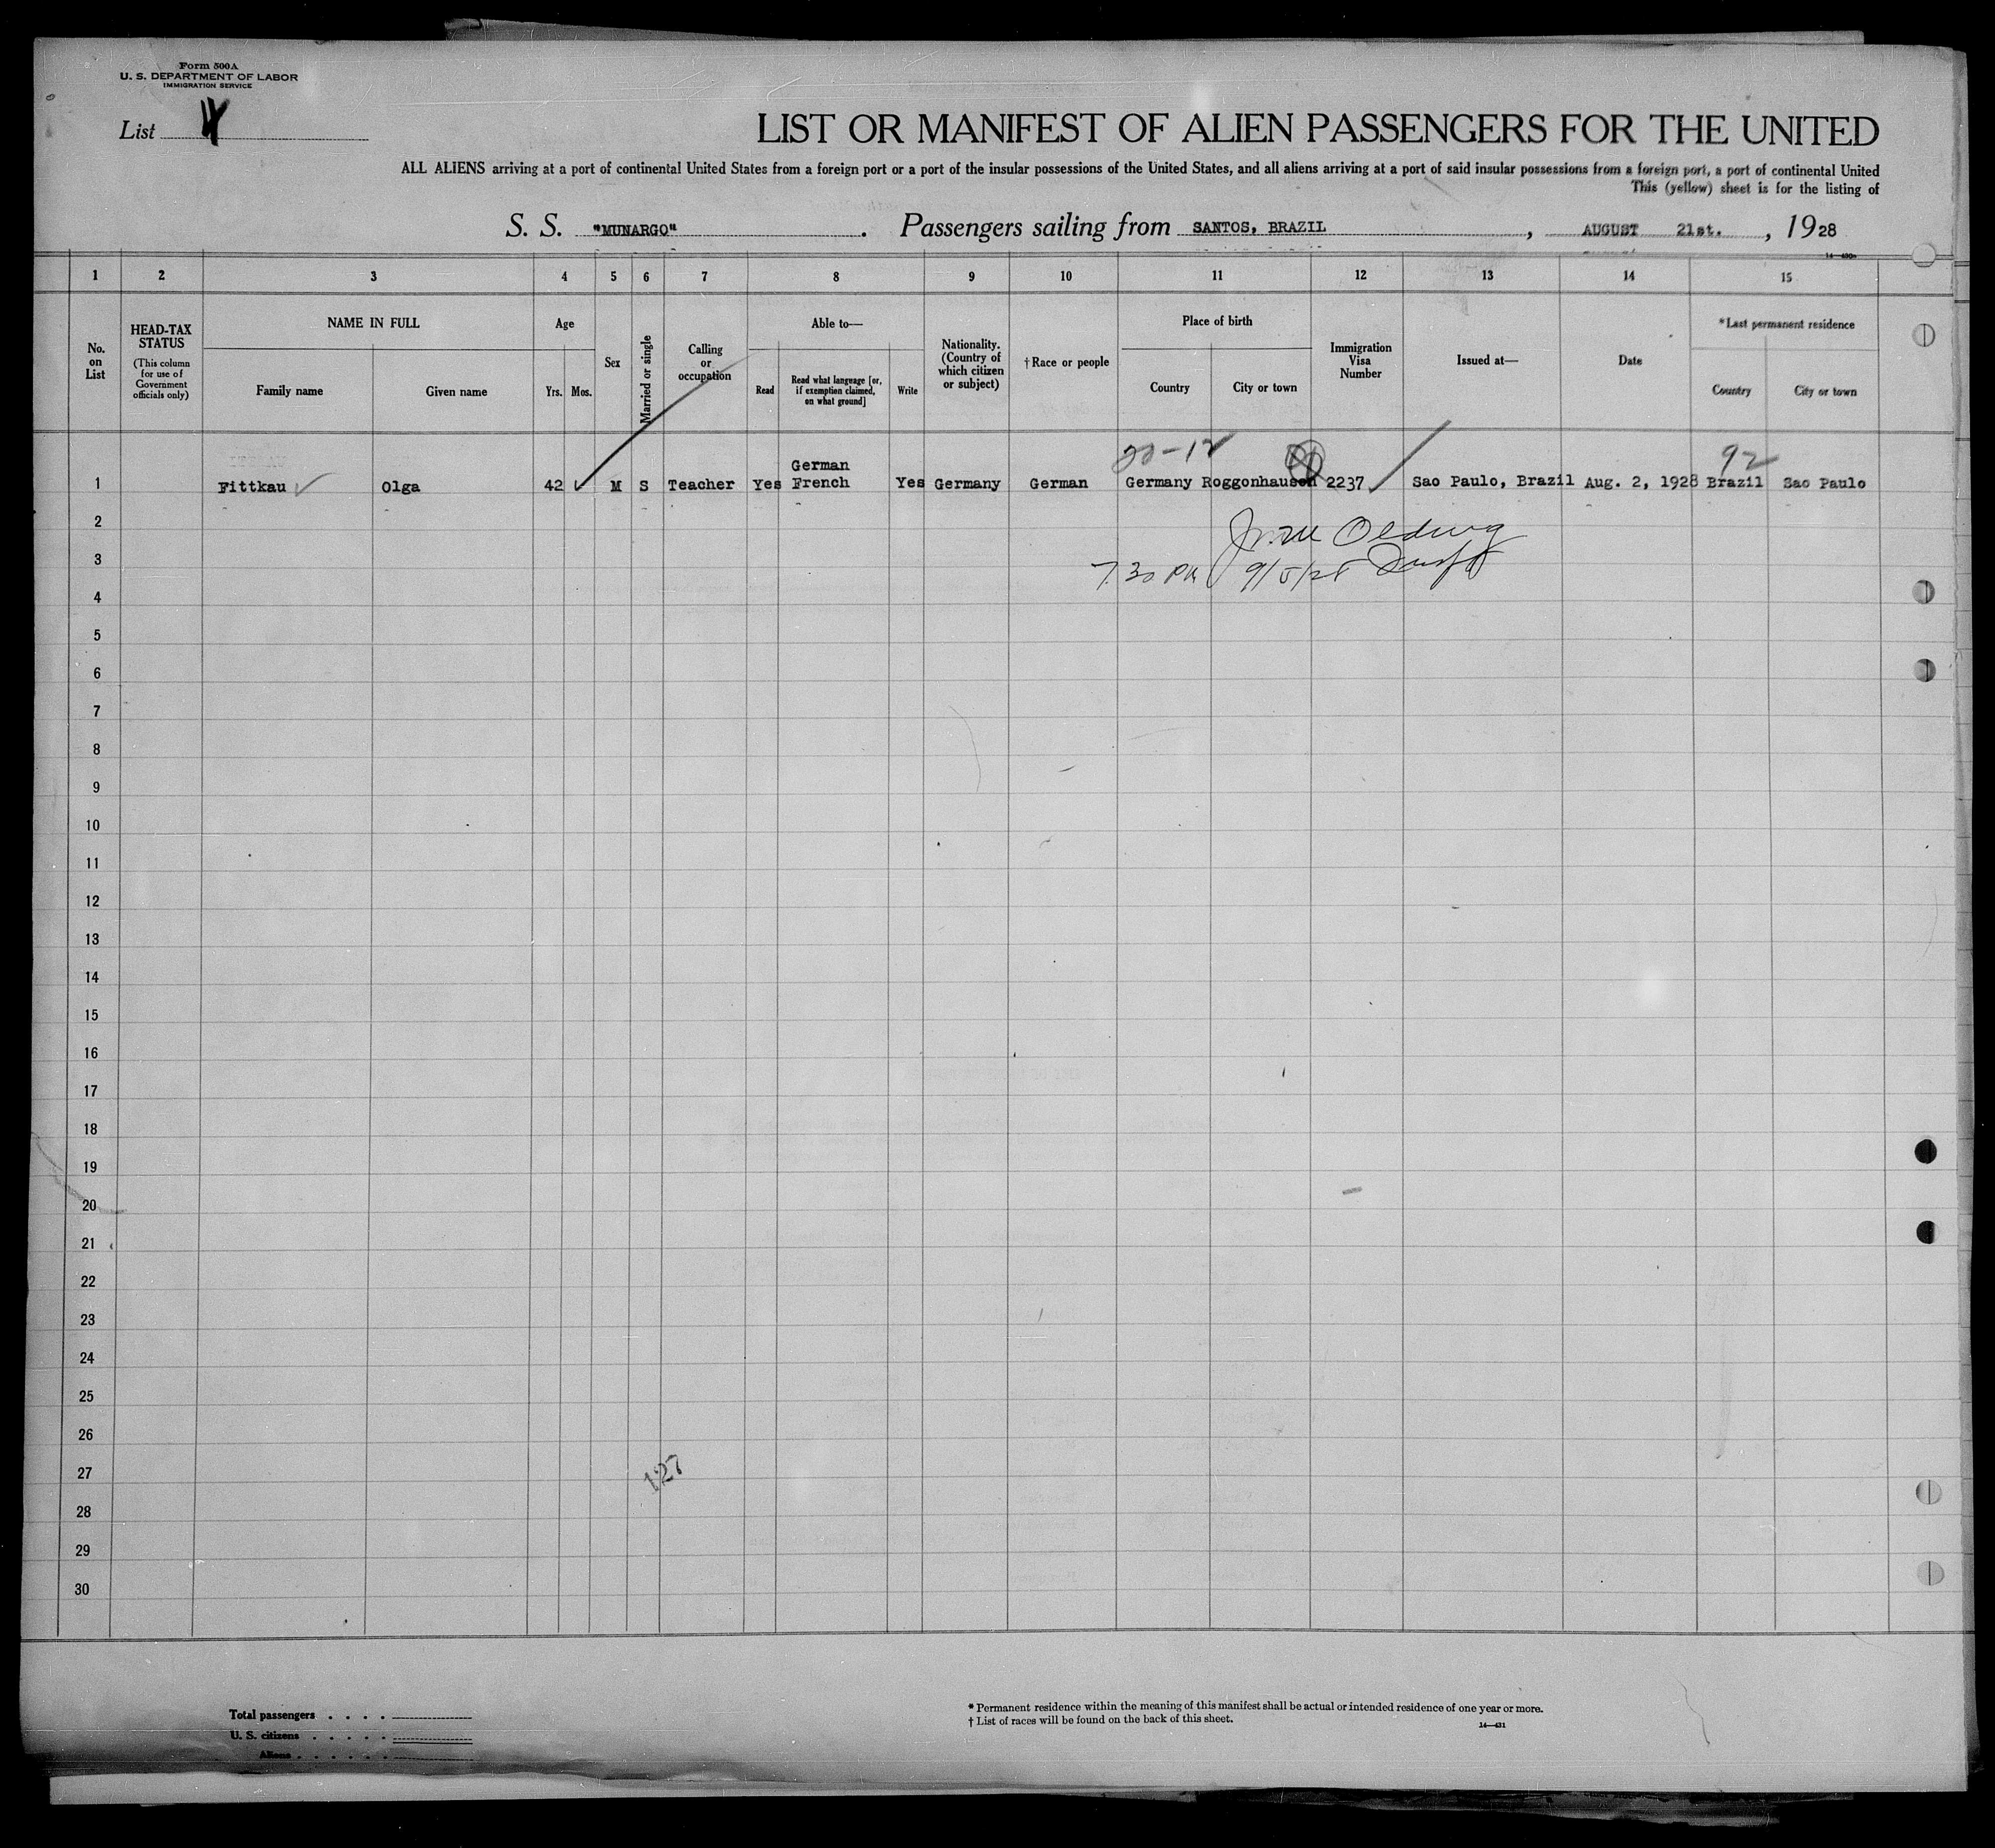 Form 500A
U. S. DEPARTMENT OF LABOR
IMMIGRATION SERVICE
List 4
LIST OR MANIFEST OF ALIEN PASSENGERS FOR THE UNITED
ALL ALIENS arriving at a port of continental United States from a foreign port or a port of the insular possessions of the United States, and all aliens arriving at a port of said insular possessions from a foreign port, a port of continental United
This (yellow) sheet is for the listing of
S. S. "MUNARGO". Passengers sailing from SANTOS, BRAZIL, AUGUST 21st., 1928
1 2 3 4 5 6 7 8 9 10 11 12 13 14 15
No. on List
HEAD-TAX STATUS
(This column for use of Government officials only)
NAME IN FULL
Family name
Given name
Age
Yrs. Mos.
Sex
Married or single
Calling or occupation
Able to—
Read
Read what language [or, if exemption claimed, on what ground]
Write
Nationality. (Country of which citizen or subject)
† Race or people
Place of birth
Country
City or town
Immigration Visa Number
Issued at—
Date
*Last permanent residence
Country
City or town
92
German
1 Fittkau Olga 42 M S Teacher Yes French Yes Germany German Germany Roggonhausen 2237 Sao Paulo, Brazil Aug. 2, 1928 Brazil Sao Paulo
2
3
7.30 PM 9/5/28
4
5
6
7
8
9
10
11
12
13
14
15
16
17
18
19
20
21
22
23
24
25
26
27
127
28
29
30
Total passengers
U. S. citizens
Aliens
* Permanent residence within the meaning of this manifest shall be actual or intended residence of one year or more.
† List of races will be found on the back of this sheet.
14—431